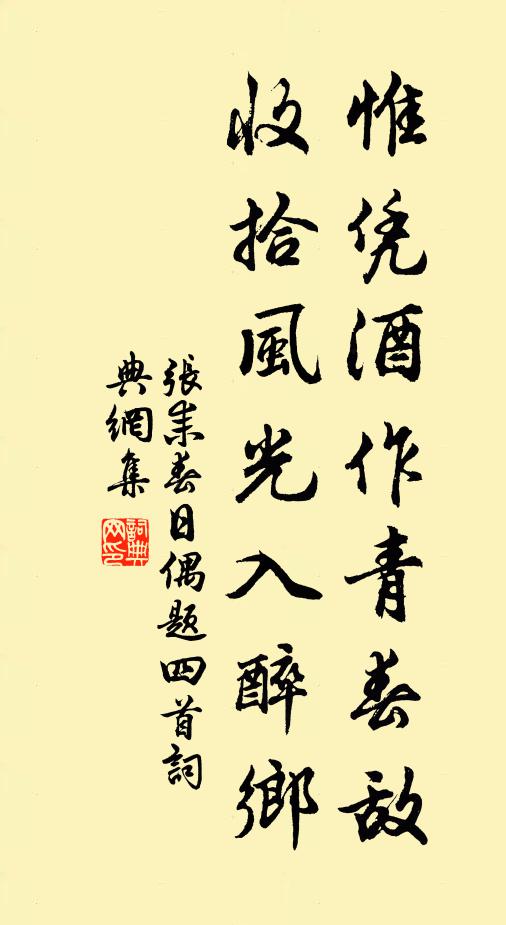 惟凭酒作青春敌
收拾風光入醉鄉
張耒春日偶題四首詞
典網集
詞典網印